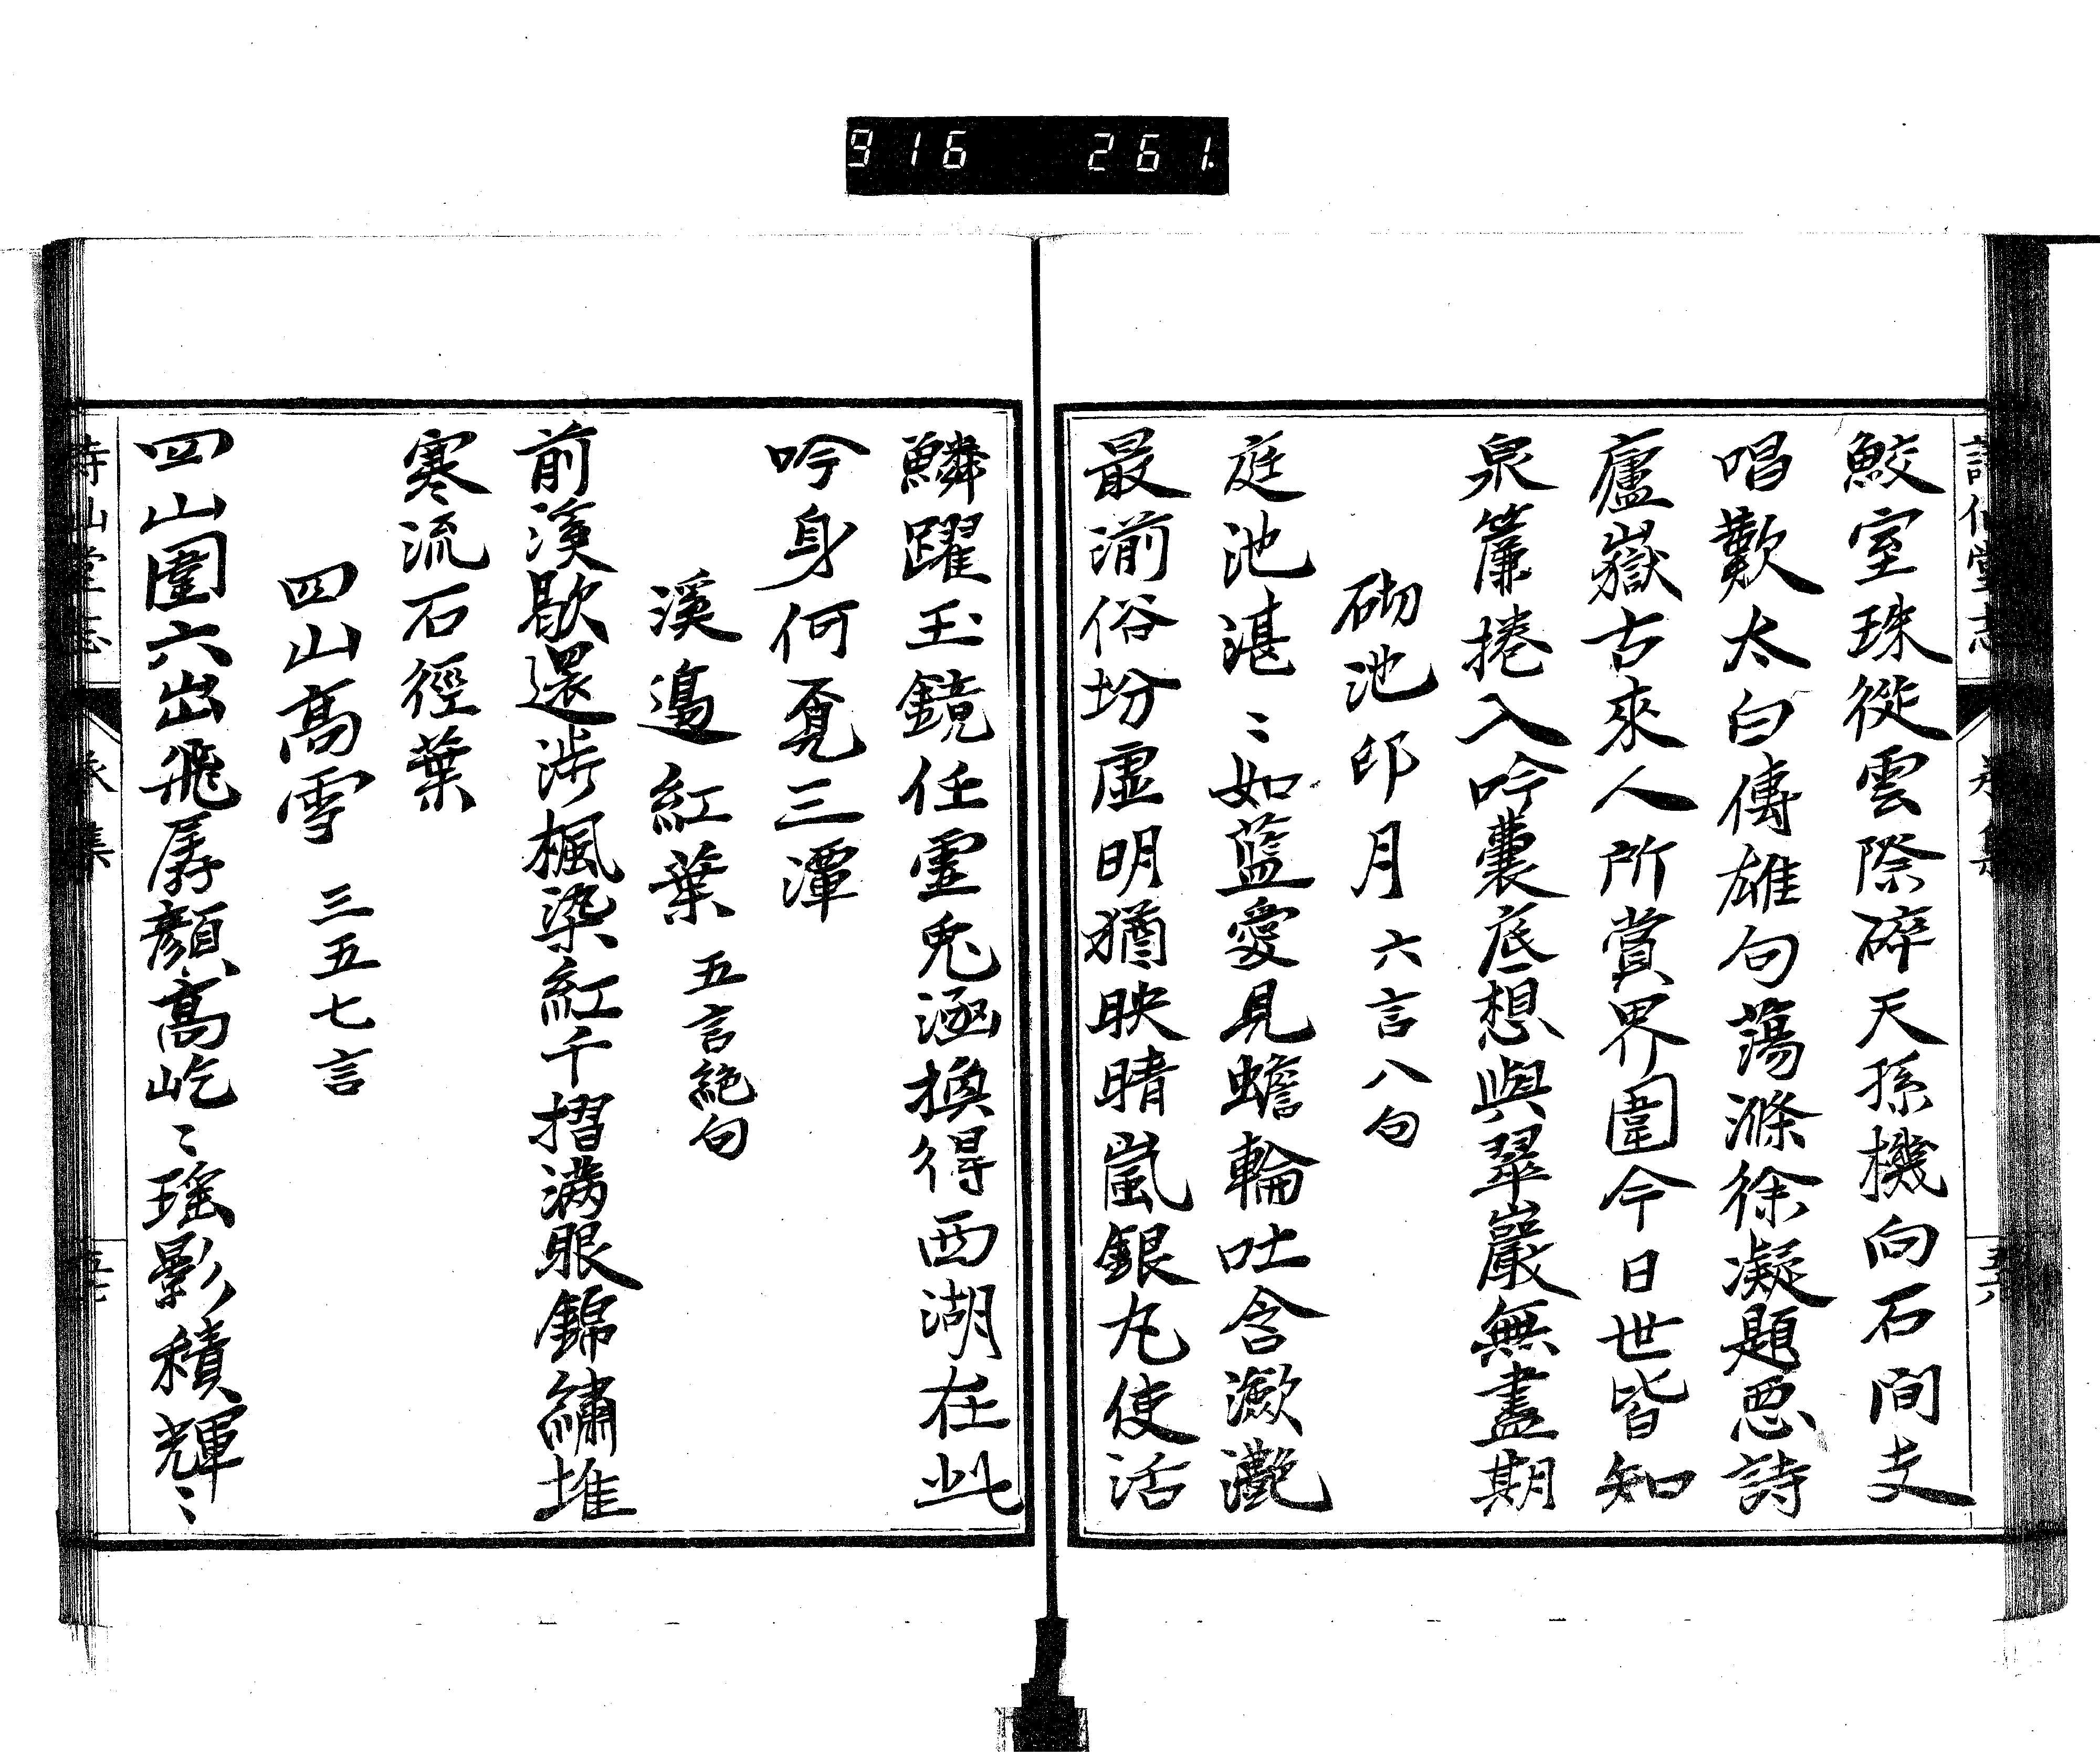 916 261.
鮫室珠從雲際碎天孫機向石間支
唱歎太白傳雄句蕩滌徐凝題惡詩
廬嶽古來人所賞界圍今日世皆知
泉簾捲入吟囊底想與翠巖無盡期
砌池印月 六言八句
庭池湛〻如藍愛見蟾輪吐含瀲灔
最湔俗坋虛明猶映晴嵐銀丸使活
鱗躍玉鏡任靈兎涵換得西湖在此
吟身何覔三潭
溪邊紅葉 五言絶句
前溪歇還涉楓染紅千摺滿眼錦繡堆
寒流石徑葉
四山高雪 三五七言
四山圍六出飛孱顏高屹〻瑤影積輝〻